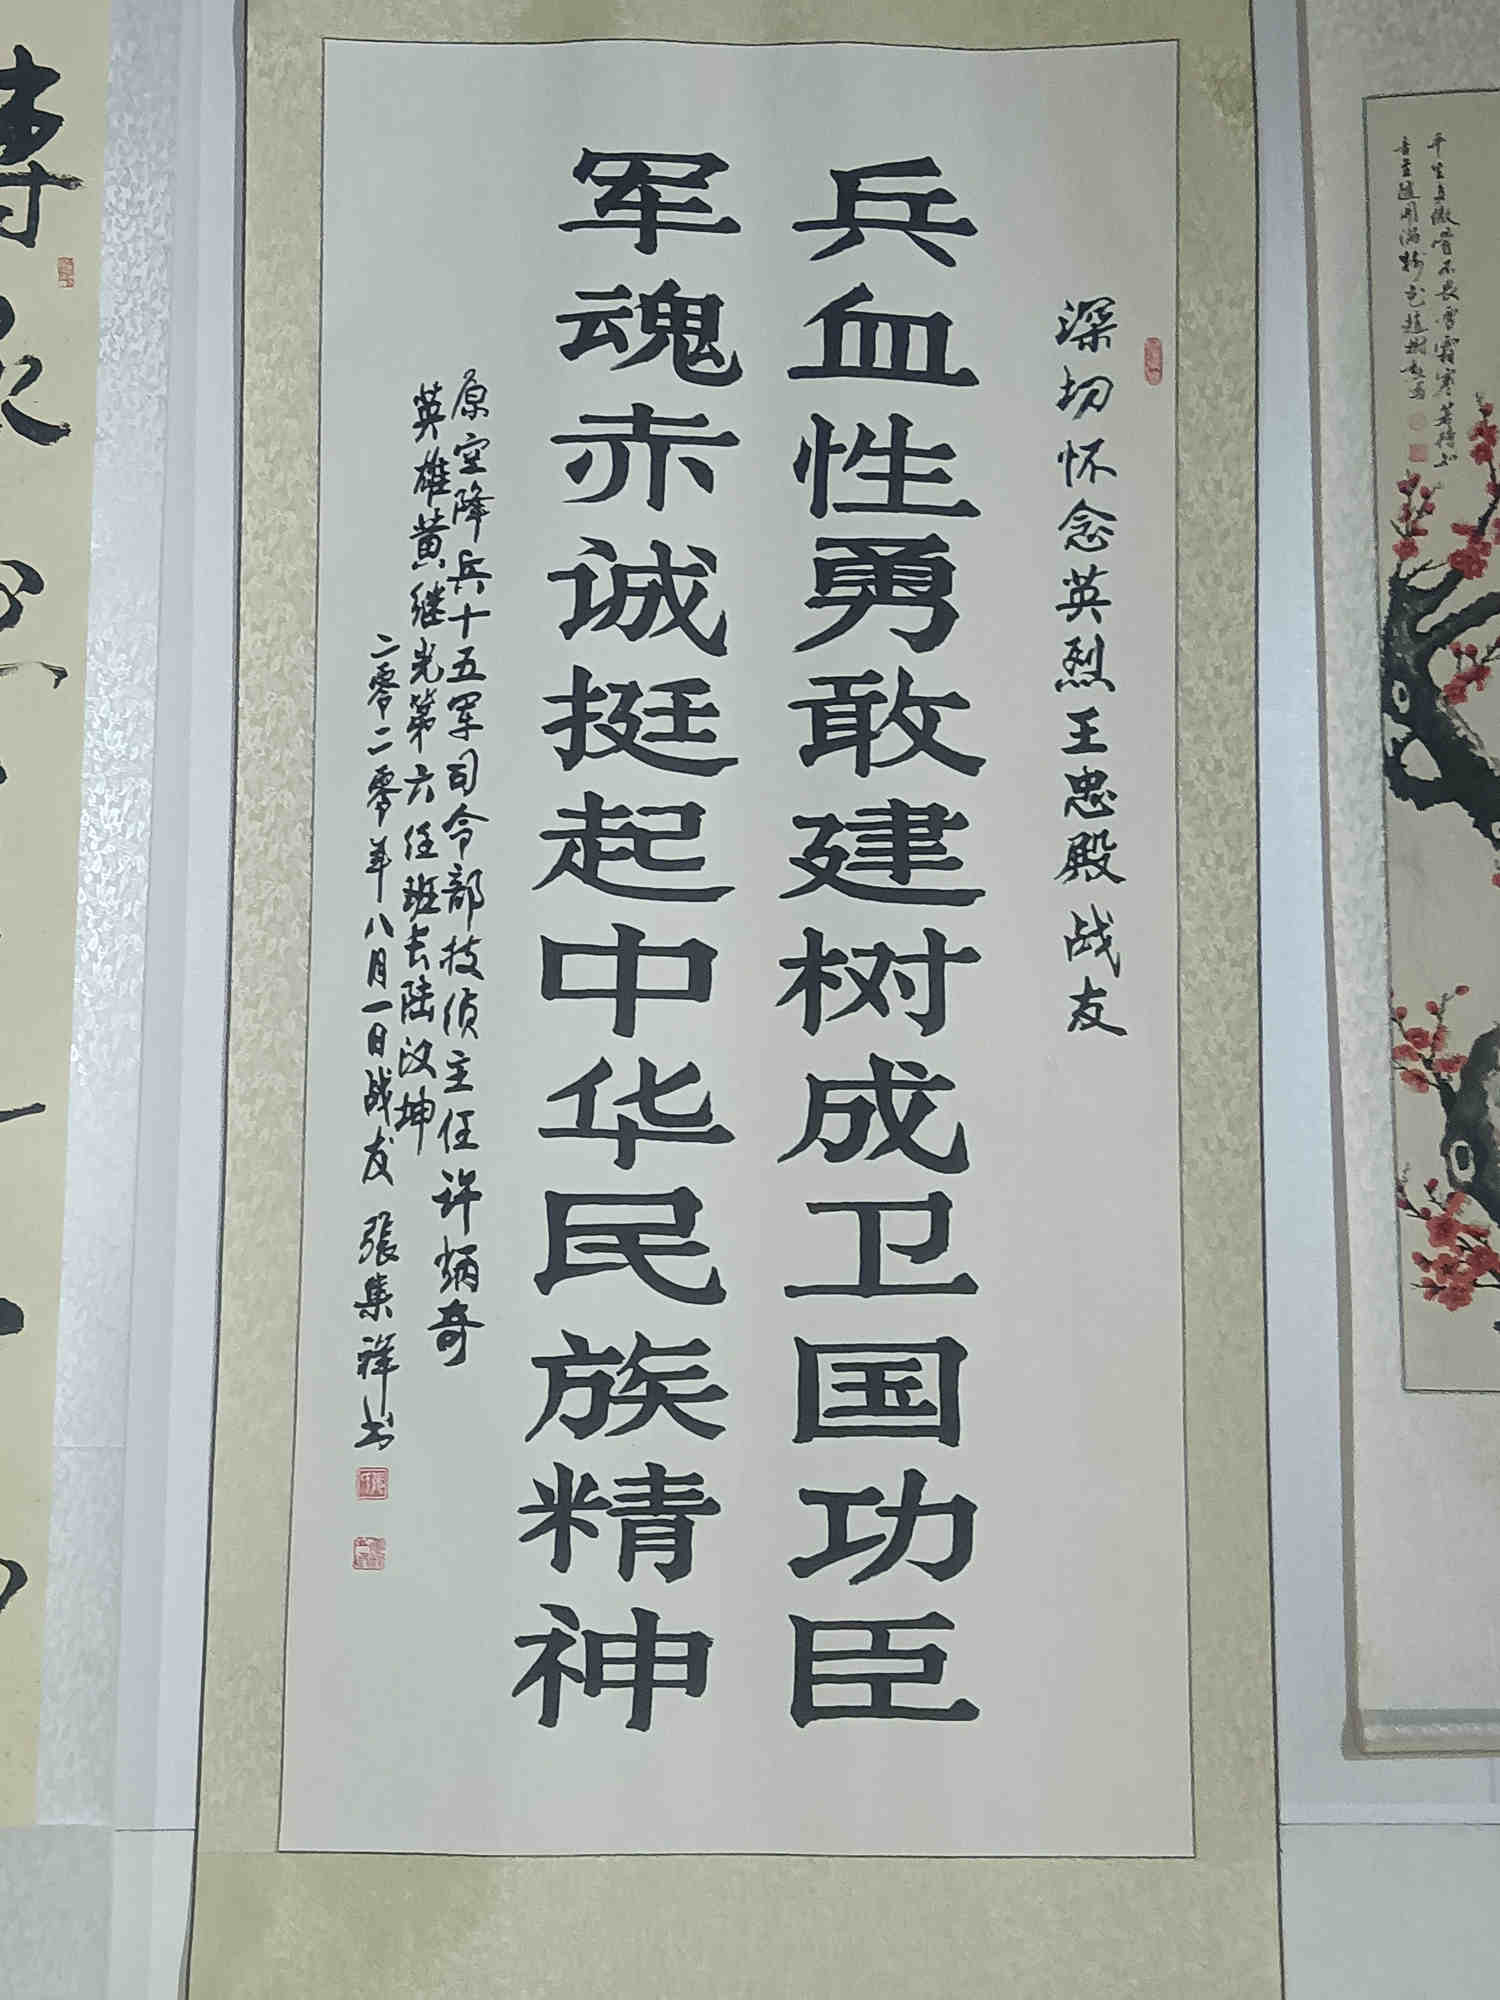 深切怀念英烈王忠殿战友
兵血性勇敢建树成卫国功臣
军魂赤诚挺起中华民族精神
原空降兵十五军司令部技侦主任许炳奇
英雄黄继光第六任班长陆汉坤
二零二零年八月一日战友 張集祥书